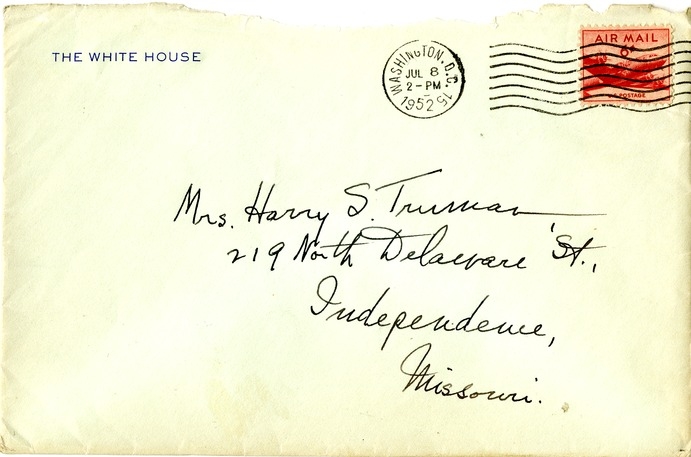 THE WHITE HOUSE
WASHINGTON, D.C. 15
JUL 8
2-PM
1952
AIR MAIL
6¢
U.S. POSTAGE
Mrs. Harry S. Truman
219 North Delaware St.,
Independence,
Missouri.